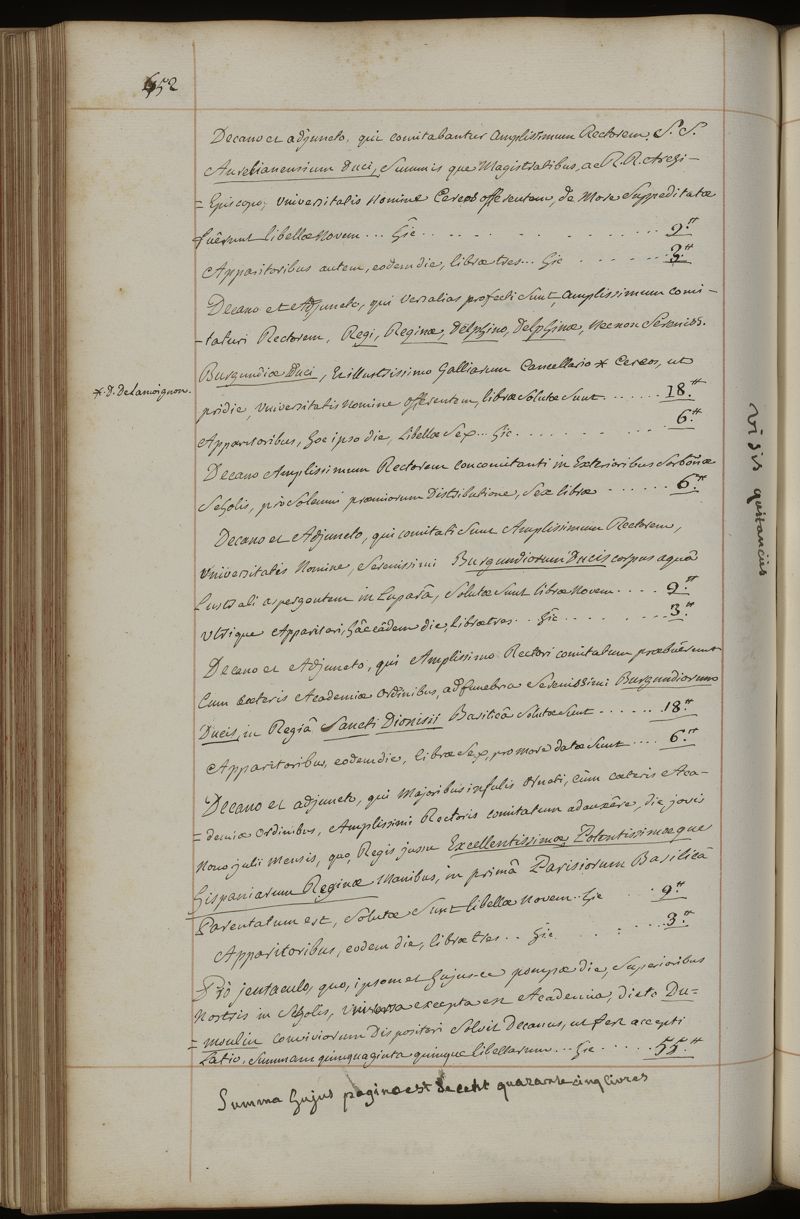 652
Decano et adjuncto, qui comitabantur Amplissimum Rectorem, S. S.
Aurelianensium Duci, Summis que Magistratibus, ac R. R. Archi-
= Episcopo, Universitatis Nomine Cereos offerentem, de More Suppeditatæ
fuêrunt libellæ Novem ... hîc ... 9.tt
Apparitoribus autem, eodem die, libræ tres ... hîc ... 3.tt
Decano et Adjuncto, qui Versalias profecti Sunt, Amplissimum comi-
-taturi Rectorem, Regi, Reginæ, Delphino, Delphinæ, necnon Sereniss.
Burgundiæ Duci, Et illustrissimo Galliarum Cancellario * Cereos, ut
* D. De Lamoignon.
pridie, Universitatis Nomine offerentem, libræ Solutæ Sunt ...... 18.tt
Apparitoribus, hoc ipso die, Libellæ Sex .. hîc ... 6.tt
Decano Amplissimum Rectorem concomitanti in Exterioribus Sorbonæ
Scholis, prò Solemni præmiorum Distributione, Sex libræ ...... 6.tt
Decano et Adjuncto, qui comitati Sunt Amplissimum Rectorem,
Universitatis Nomine, Serenissimi Burgundiorum Ducis corpus aquâ
Lustrali aspergentem in Luparâ, Solutæ Sunt libræ Novem .... 9.tt
Utrique Apparitori, hâc eâdem die, Libræ tres .. hîc ... 3.tt
Decano et Adjuncto, qui Amplissimo Rectori comitatum præbuêrunt
Cum cæteris Academiæ Ordinibus, ad funebria Serenissimi Burgundiorum
Ducis, in Regiâ Sancti Dionisii Basilicâ Solutæ Sunt ...... 18.tt
Apparitoribus, eodem die, libræ Sex, pro more datæ Sunt .... 6.tt
Decano et adjuncto, qui Majoribus infulis Ornati, cùm cæteris Aca-
= demiæ Ordinibus, Amplissimi Rectoris comitatum adauxêre, die jovis
Nono julii Mensis, quo, Regis jussu Excellentissimæ Potentissimæque
Hispaniarum Reginæ Manibus, in primâ Parisiorum Basilicâ
Parentatum est, Solutæ Sunt libellæ Novem .. hîc .. 9.tt
Apparitoribus, eodem die, libræ tres .. hîc ... 3.tt
Prò jentaculo, quo, ipsomet hujus-ce pompæ die, Superioribus
Nostris in Scholis, Universa excepta est Academia, dicto Du=
= moulin conviviorum Dispositori Solvit Decanus, ut fert accepti
Latio, Summam quinquaginta quinque libellarum ... hîc ..... 55.tt
Summa hujus paginæ est de cent quarante cinq livres
visis quitanciis